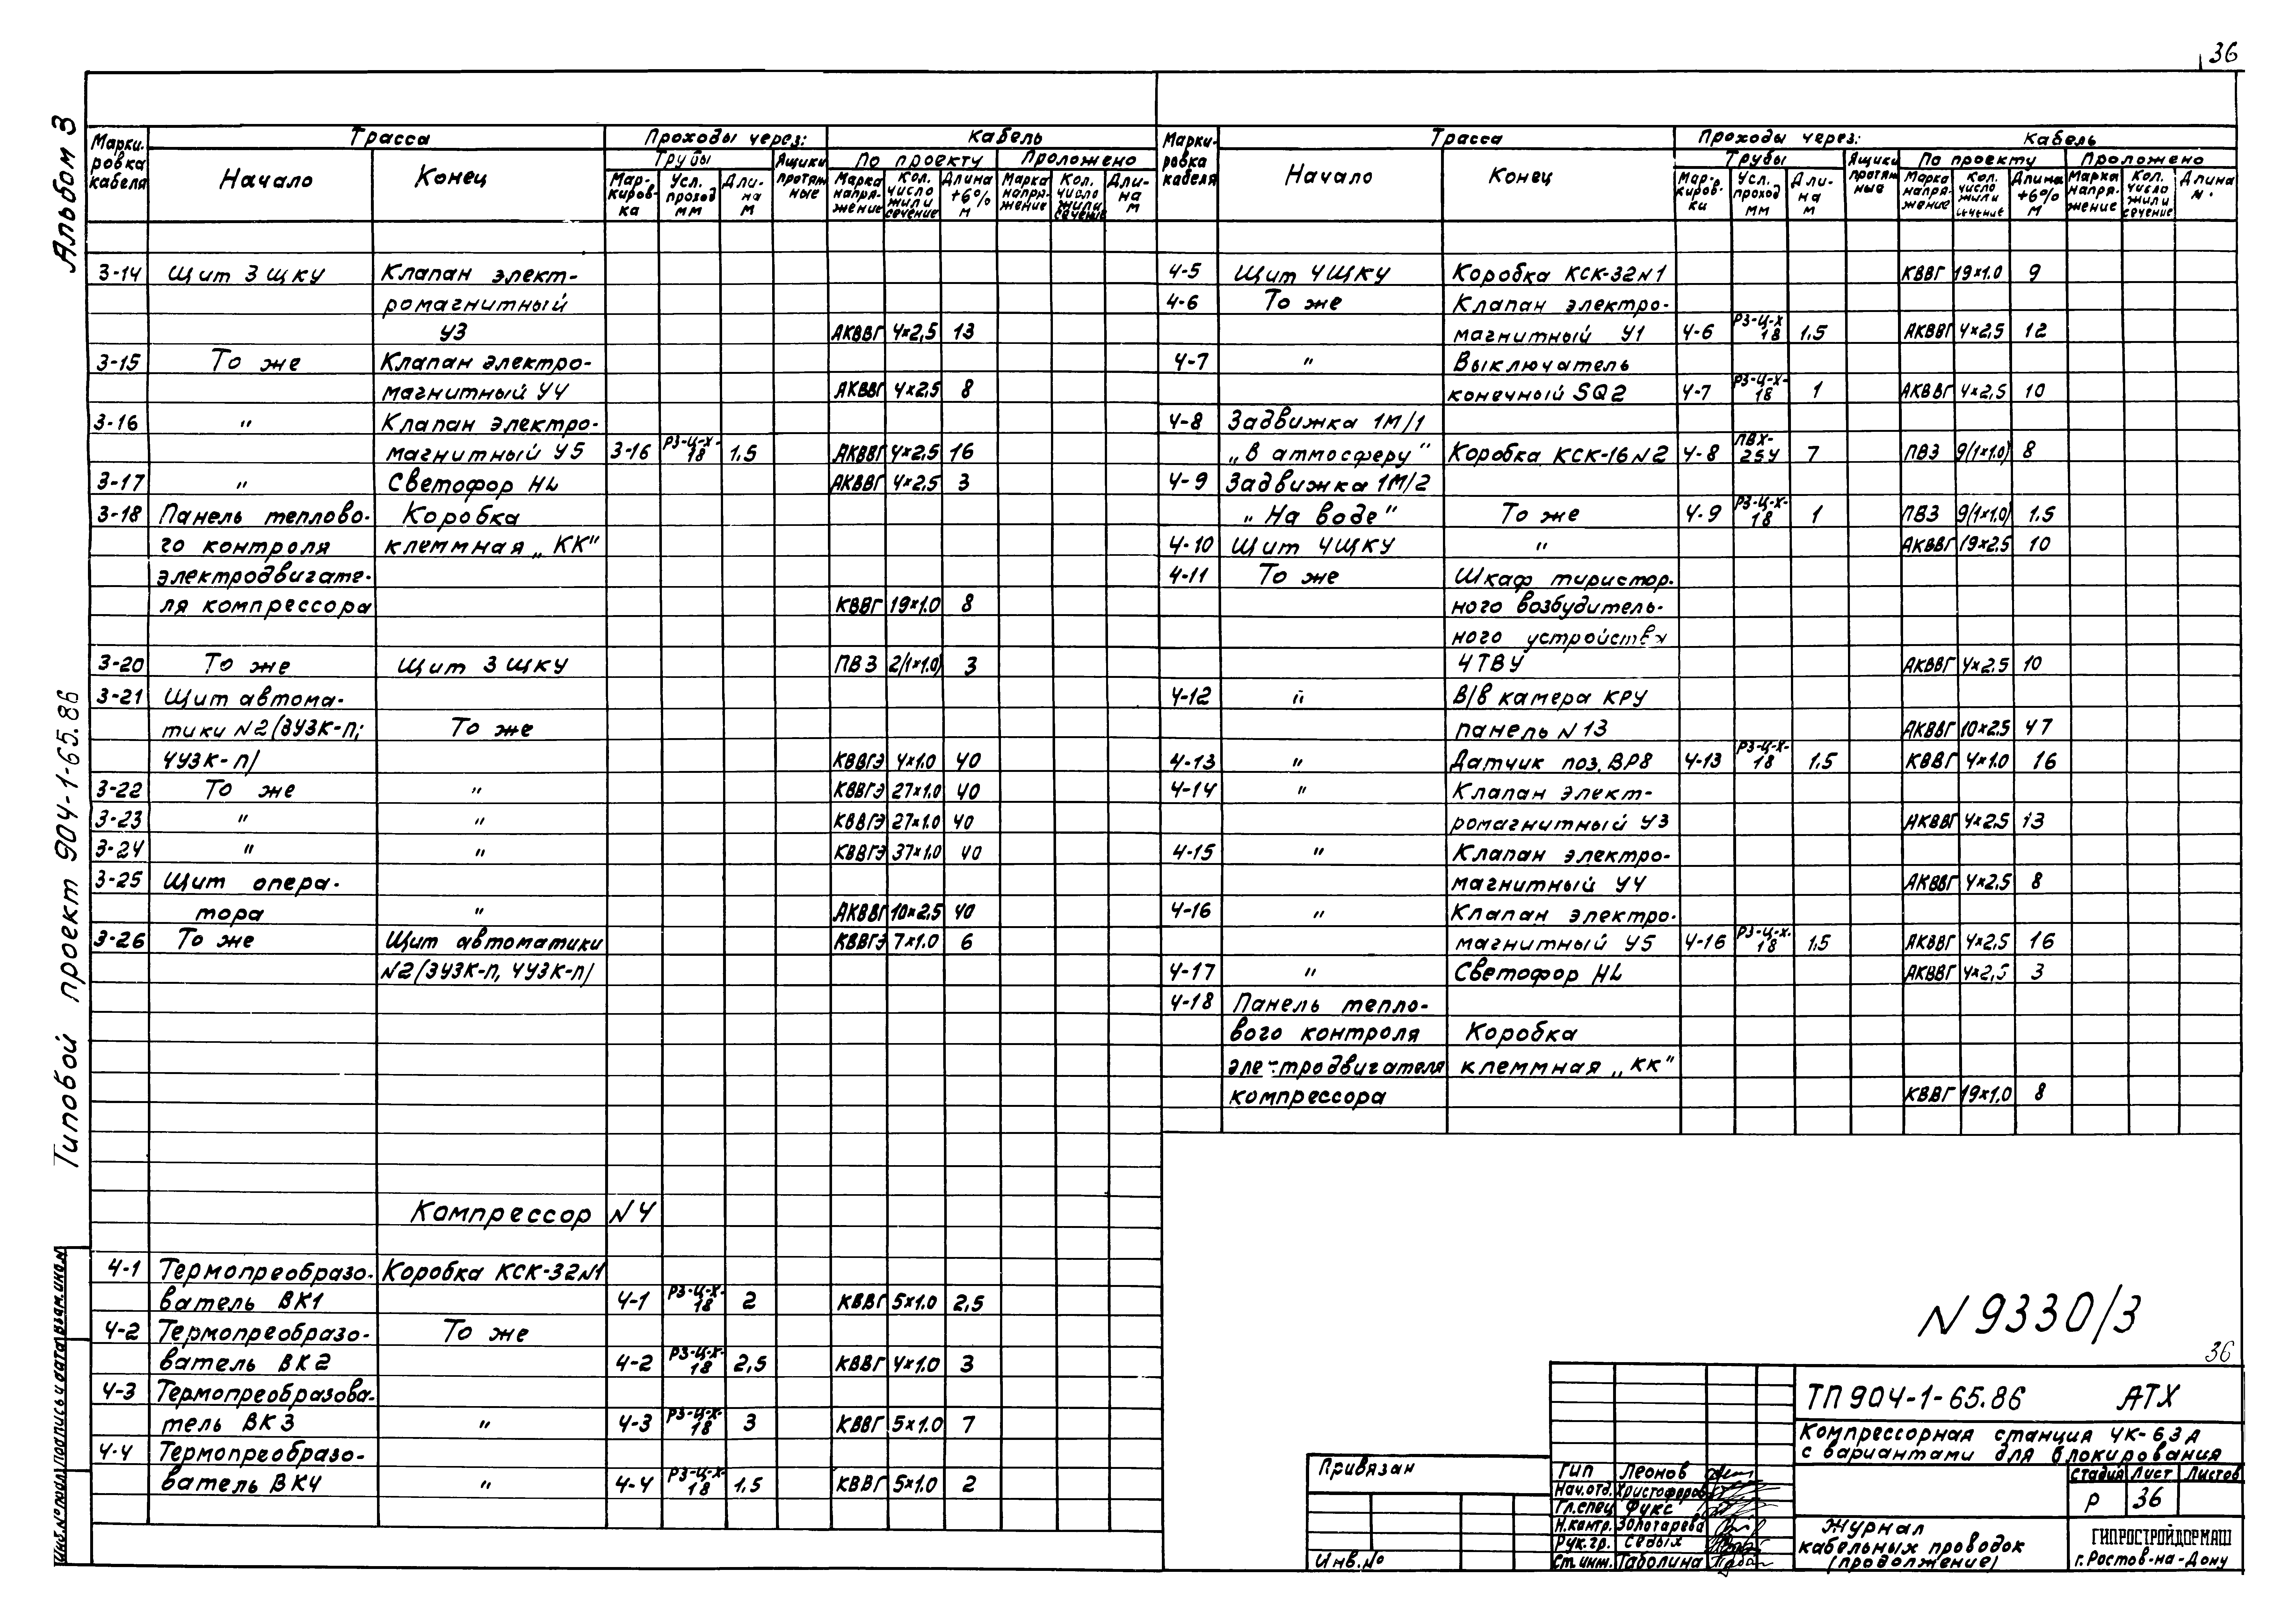 36
Альбом 3
Типовой проект 904-1-65.86
Марки-ровка кабеля | Трасса | Проходы через: | Кабель
Начало | Конец | Трубы | Ящики протяж ные | По проекту | Проложено
Мар-киров-ка | Усл. проход мм | Дли-на м | Марка напря-жение | Кол. число жил и сечение | Длина +6% м | Марка напря-жение | Кол. число жил и сечение | Дли-на м
3-14 Щит 3 ЩКУ Клапан элект-
ромагнитный
У3 АКВВГ 4×2,5 13
3-15 То же Клапан электро-
магнитный У4 АКВВГ 4×2,5 8
3-16 " Клапан электро-
магнитный У5 3-16 РЗ-Ц-Х-18 1,5 АКВВГ 4×2,5 16
3-17 " Светофор HL АКВВГ 4×2,5 3
3-18 Панель теплово- Коробка
го контроля клеммная „КК"
электродвигате-
ля компрессора КВВГ 19×1.0 8
3-20 То же Щит 3 ЩКУ ПВ3 2/(1×1.0) 3
3-21 Щит автома-
тики N2/3УЗК-П; То же
4УЗК-П/ КВВГЭ 4×1.0 40
3-22 То же " КВВГЭ 27×1.0 40
3-23 " " КВВГЭ 27×1.0 40
3-24 " " КВВГЭ 37×1.0 40
3-25 Щит опера-
тора " АКВВГ 10×2,5 40
3-26 То же Щит автоматики КВВГЭ 7×1.0 6
N2/3УЗК-П, 4УЗК-П/
Компрессор N4
4-1 Термопреобразо- Коробка КСК-32N1
ватель ВК1 4-1 РЗ-Ц-Х-18 2 КВВГ 5×1.0 2,5
4-2 Термопреобразо- То же
ватель ВК2 4-2 РЗ-Ц-Х-18 2,5 КВВГ 4×1.0 3
4-3 Термопреобразова-
тель ВК3 " 4-3 РЗ-Ц-Х-18 3 КВВГ 5×1.0 7
4-4 Термопреобразо-
ватель ВК4 " 4-4 РЗ-Ц-Х-18 1,5 КВВГ 5×1.0 2
Марки-ровка кабеля | Трасса | Проходы через: | Кабель
Начало | Конец | Трубы | Ящики протяж ные | По проекту | Проложено
Мар-киров-ки | Усл. проход мм | Дли-на м | Марка напря-жение | Кол. число жил и сечение | Длина +6% м | Марка напря-жение | Кол. число жил и сечение | Длина м.
4-5 Щит 4ЩКУ Коробка КСК-32N1 КВВГ 19×1.0 9
4-6 То же Клапан электро-
магнитный У1 4-6 РЗ-Ц-Х 18 1,5 АКВВГ 4×2,5 12
4-7 " Выключатель
конечный SQ2 4-7 РЗ-Ц-Х-18 1 АКВВГ 4×2,5 10
4-8 Задвижка 1М/1
„В атмосферу" Коробка КСК-16N2 4-8 ПВХ-25У 7 ПВ3 9/(1×1.0) 8
4-9 Задвижка 1М/2
„На воде" То же 4-9 РЗ-Ц-Х-18 1 ПВ3 9/(1×1.0) 1.5
4-10 Щит 4ЩКУ " АКВВГ 19×2.5 10
4-11 То же Шкаф тиристор-
ного возбудитель-
ного устройства
4ТВУ АКВВГ 4×2.5 10
4-12 " В/в камера КРУ
панель N13 АКВВГ 10×2.5 47
4-13 " Датчик поз. ВР8 4-13 РЗ-Ц-Х-18 1.5 КВВГ 4×1.0 16
4-14 " Клапан элект-
ромагнитный У3 АКВВГ 4×2.5 13
4-15 " Клапан электро-
магнитный У4 АКВВГ 4×2,5 8
4-16 " Клапан электро-
магнитный У5 4-16 РЗ-Ц-Х-18 1,5 АКВВГ 4×2,5 16
4-17 " Светофор HL АКВВГ 4×2,5 3
4-18 Панель тепло-
вого контроля Коробка
электродвигателя клеммная „КК"
компрессора КВВГ 19×1,0 8
N 9330/3
36
ТП 904-1-65.86 АТХ
Компрессорная станция 4К-63А
с вариантами для блокирования
Стадия Лист Листов
Р 36
Журнал
кабельных проводок
(продолжение)
ГИПРОСТРОЙДОРМАШ
г. Ростов-на-Дону
Привязан
Инв.№
ГИП Леонов
Нач.отд. Христофоров
Гл.спец Фукс
Н.контр. Золотарева
Рук.гр. Седых
Ст.инж. Таболина
Инв.№ подл. Подпись и дата Взам.инв.№